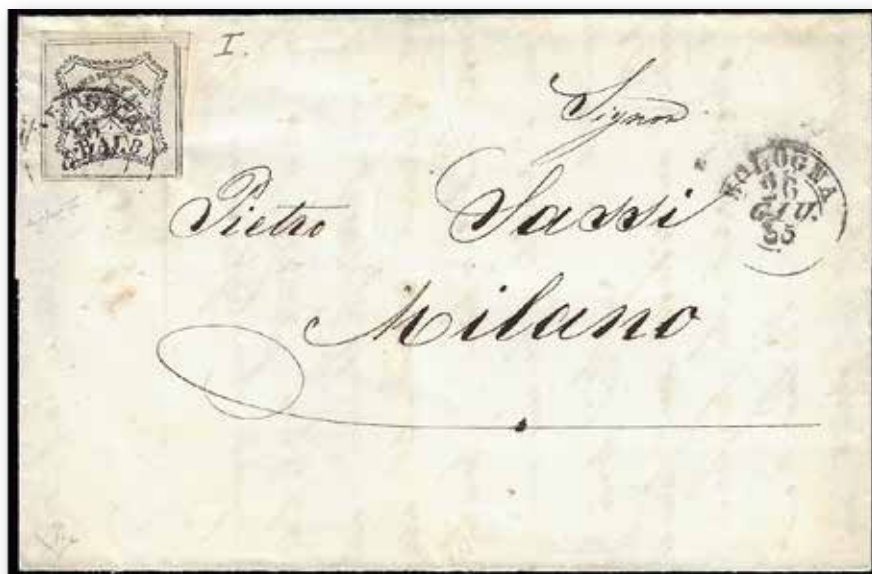 I.
8 BAI.
Signor
Pietro Sassi
Milano
BOLOGNA
26
GIU.
55